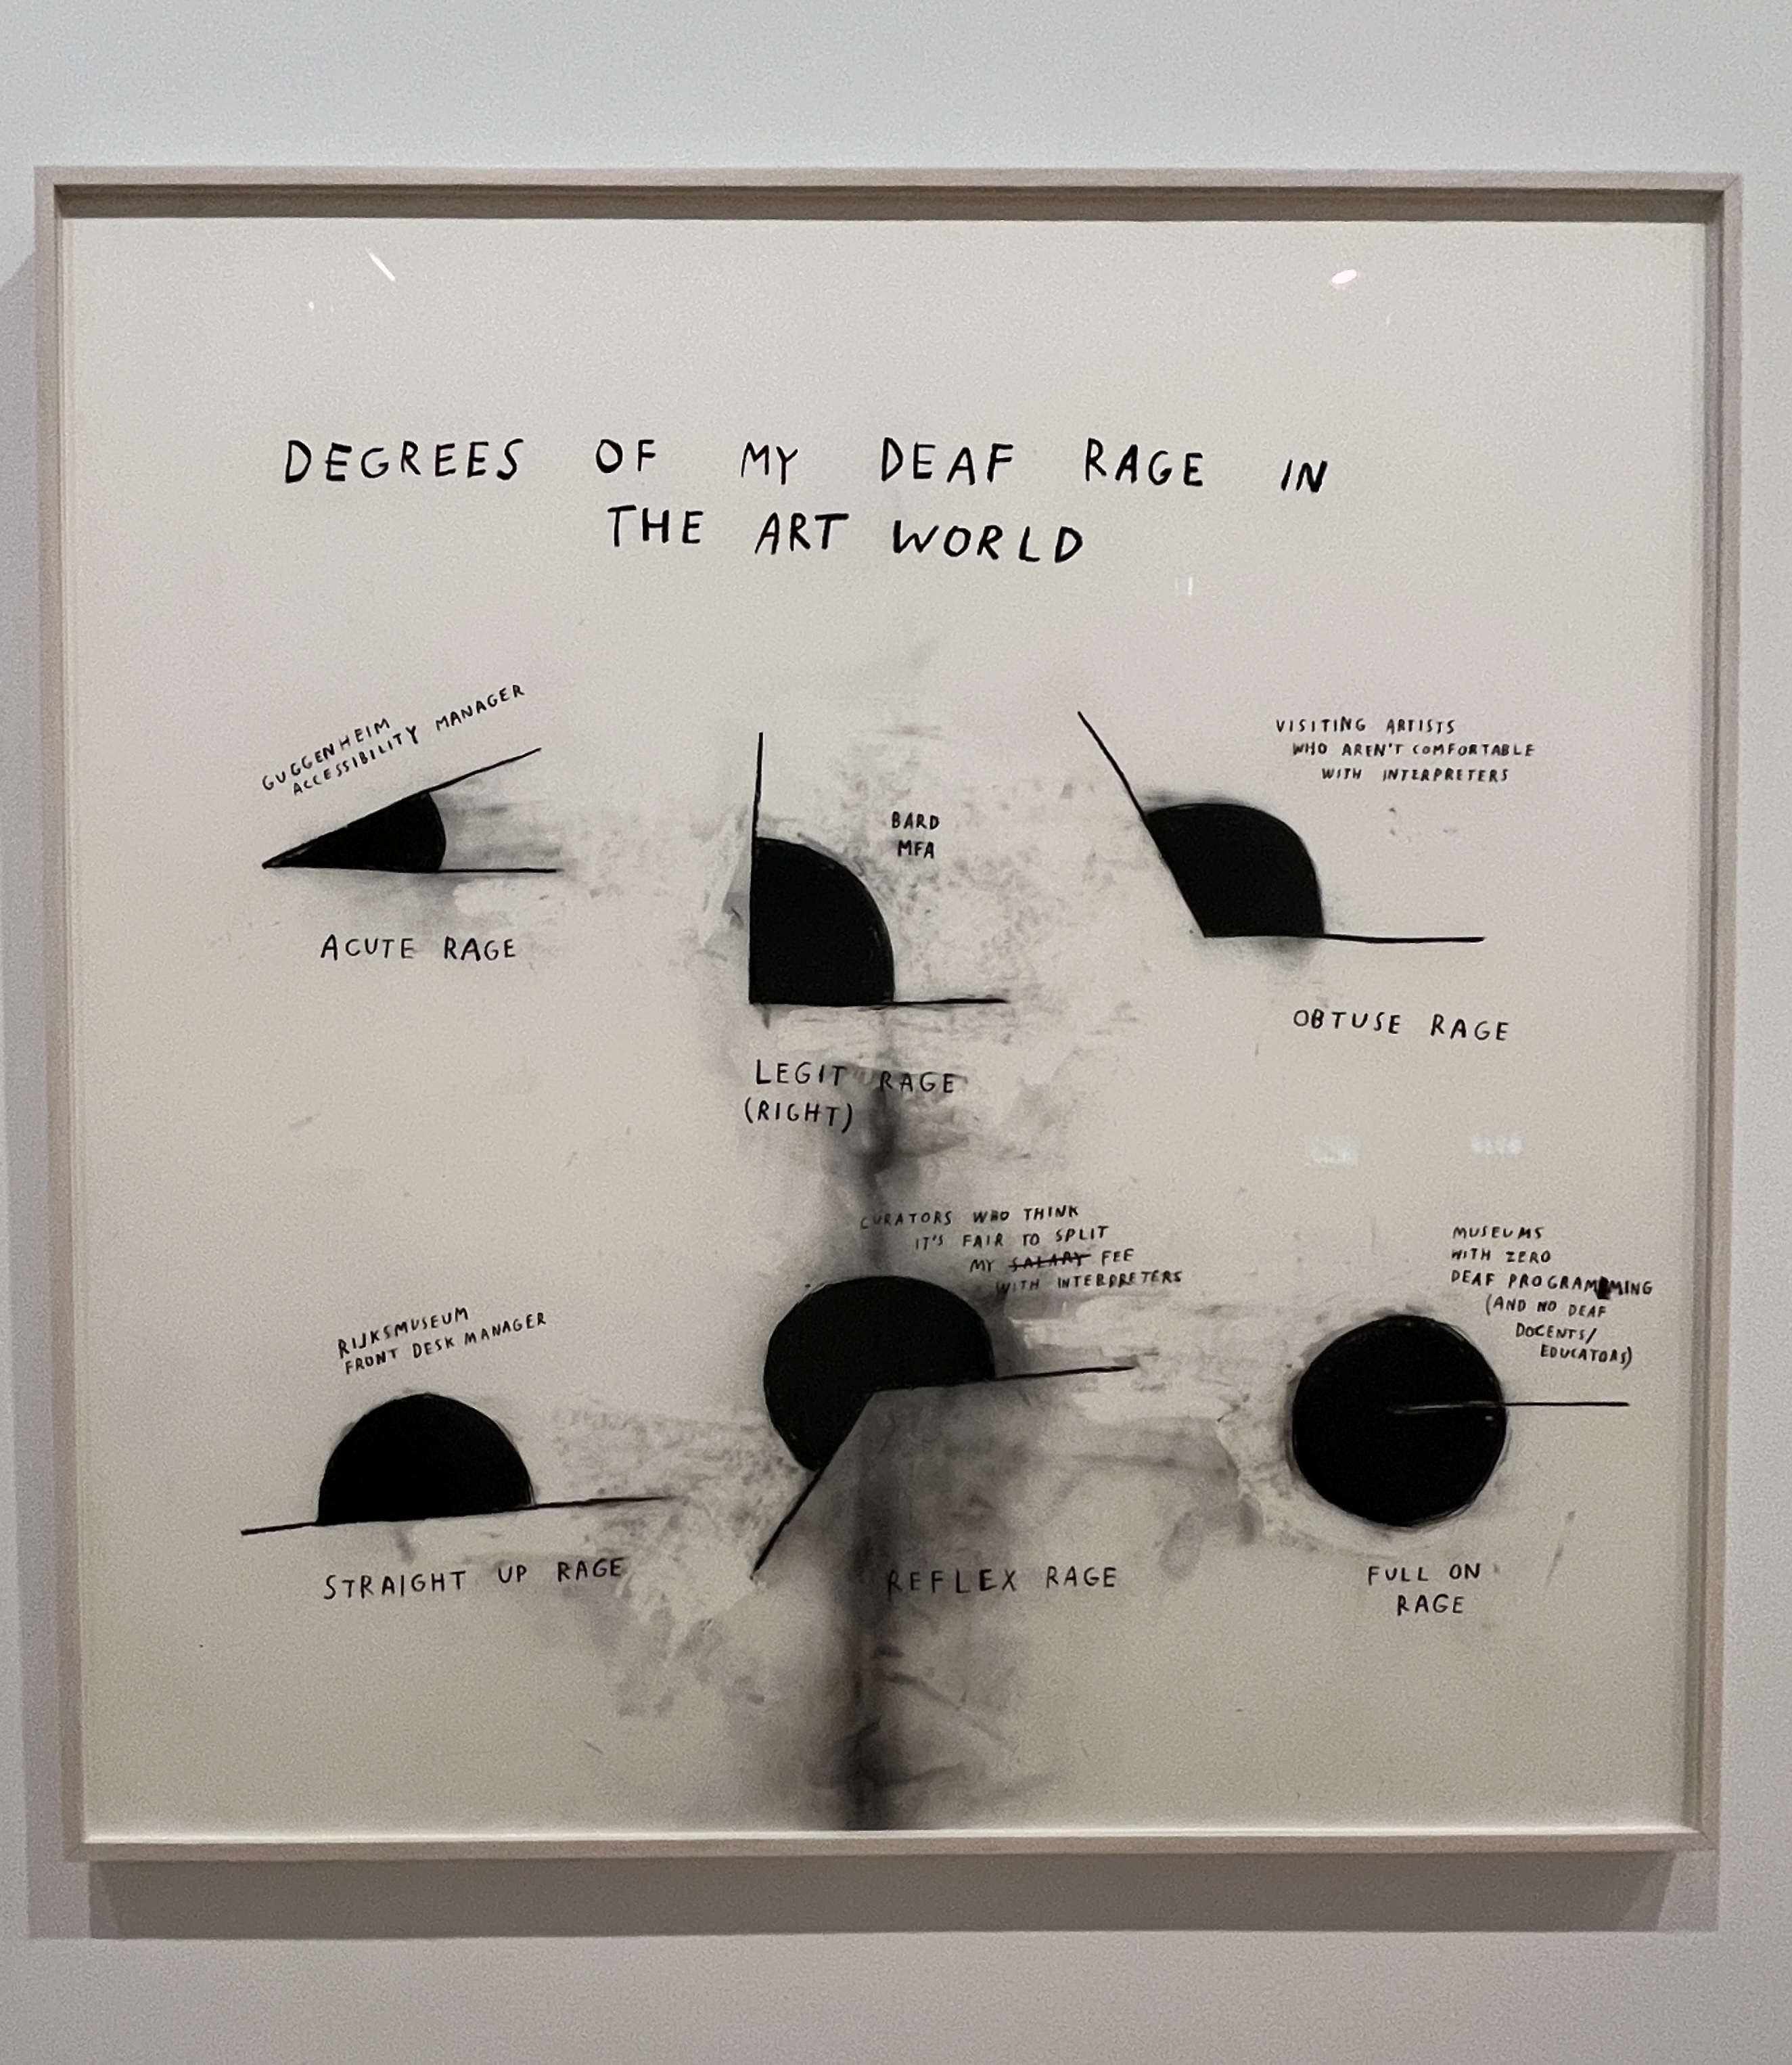 DEGREES OF MY DEAF RAGE IN
THE ART WORLD
GUGGENHEIM
ACCESSIBILITY MANAGER
ACUTE RAGE
BARD
MFA
LEGIT RAGE
(RIGHT)
VISITING ARTISTS
WHO AREN'T COMFORTABLE
WITH INTERPRETERS
OBTUSE RAGE
RIJKSMUSEUM
FRONT DESK MANAGER
STRAIGHT UP RAGE
CURATORS WHO THINK
IT'S FAIR TO SPLIT
MY SALARY FEE
WITH INTERPRETERS
REFLEX RAGE
MUSEUMS
WITH ZERO
DEAF PROGRAMMING
(AND NO DEAF
DOCENTS/
EDUCATORS)
FULL ON
RAGE